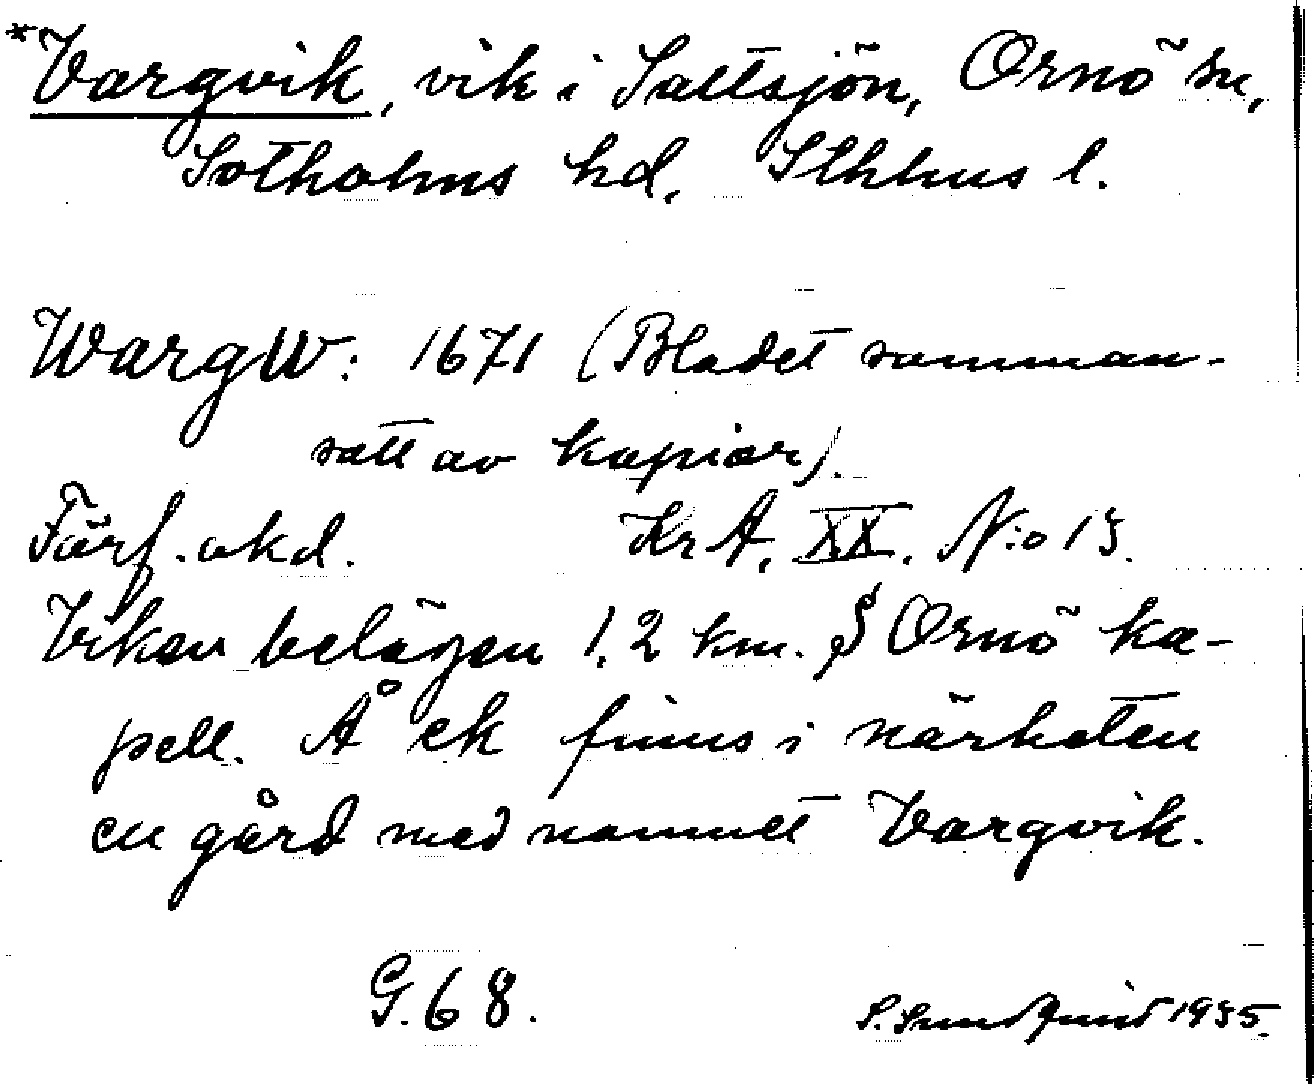 *Vargvik, vik i Saltsjön, Ornö sn,
Sotholms hd, Sthlms l.
WargW: 1671 (Bladet samman-
satt av kopior).
Förf. okd. KrA, XX, N:o 15.
Viken belägen 1,2 km. S Ornö ka-
pell. Å ek finns i närheten
en gård med namnet Vargvik.
G. 68.
S. Sundquist 1935.